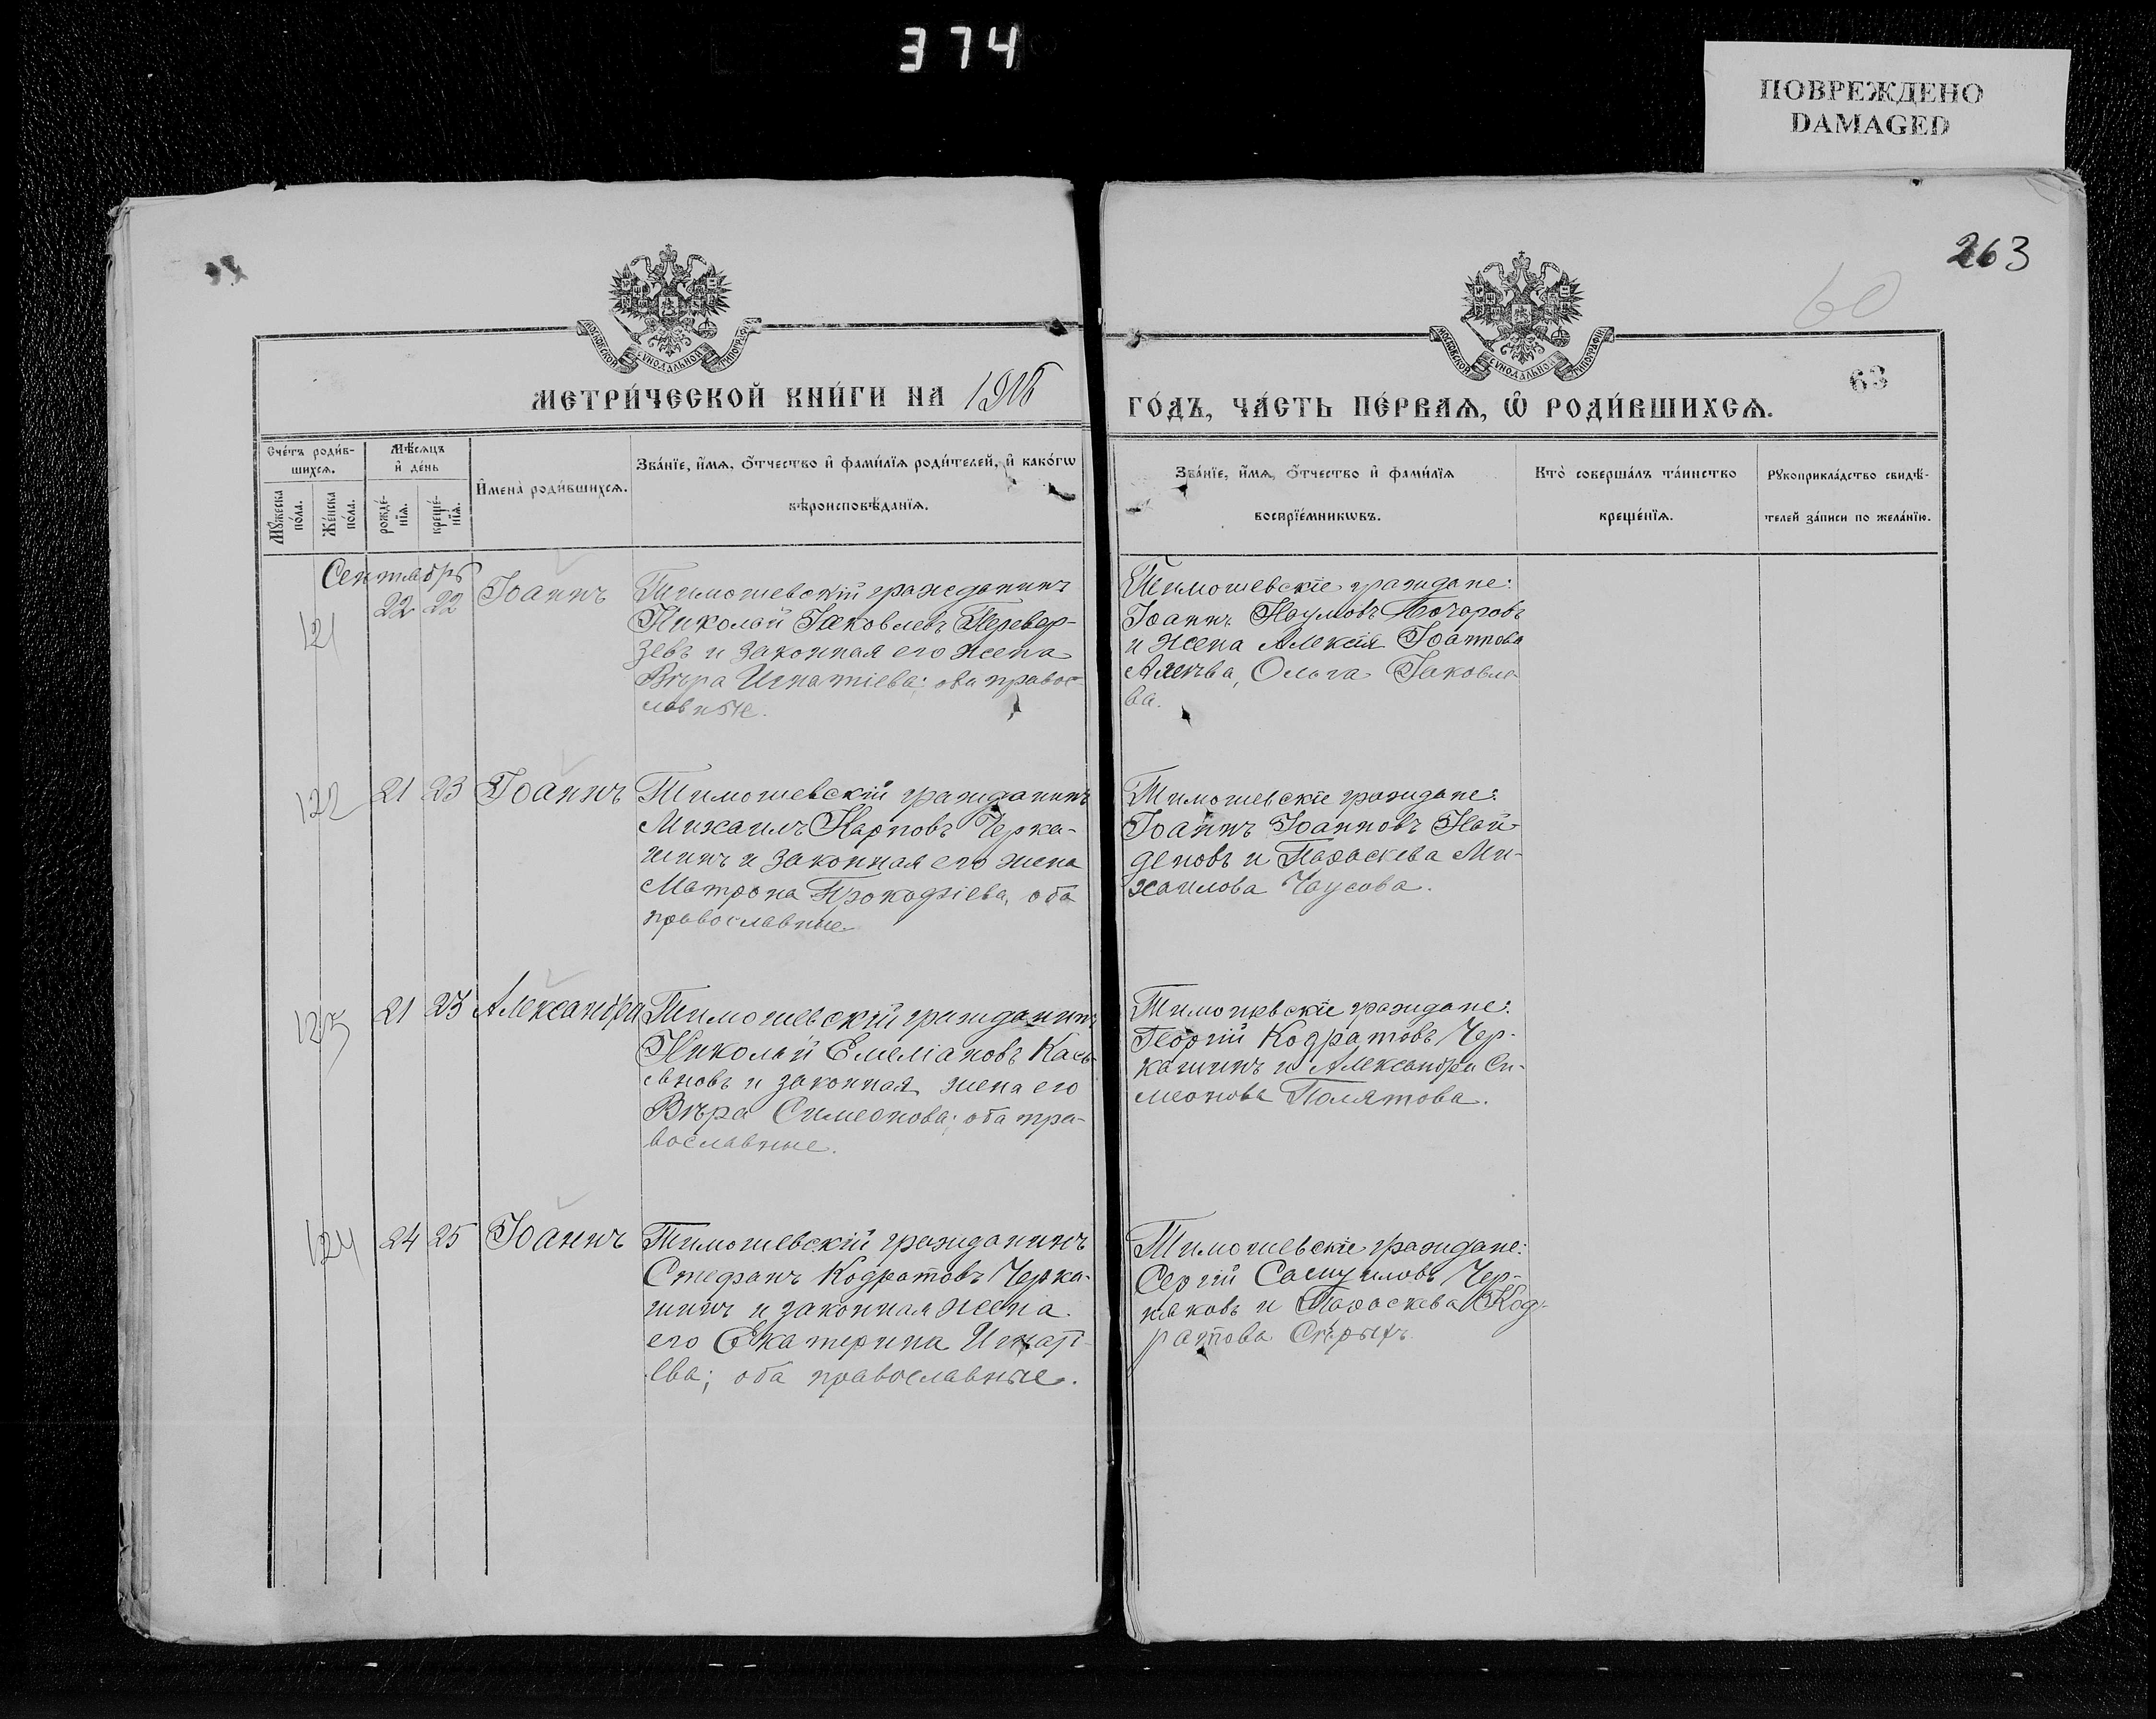 374
ПОВРЕЖДЕНО
DAMAGED
263
60
63
МОСКОВСКОЙ СУНОДАЛЬНОЙ ТИПОГРАФІИ
МОСКОВСКОЙ СУНОДАЛЬНОЙ ТИПОГРАФІИ
МЕТРИ́ЧЕСКОЙ КНИ́ГИ НА
ГО́ДЪ, ЧА́СТЬ ПЕ́РВАѦ, Ѽ РОДИ́ВШИХСѦ.
Сче́тъ роди́в-
шихсѧ.
Мꙋ́жеска
по́ла.
Же́нска
по́ла.
Мѣ́сѧцъ
и҆ де́нь
рожде́-
нїѧ.
креще́-
нїѧ.
И҆мена̀ роди́вшихсѧ.
Зва́нїе, и҆́мѧ, о҆́тчество и҆ фами́лїѧ роди́телей, и҆ како́гѡ
вѣроисповѣ́данїѧ.
Зва́нїе, и҆́мѧ, о҆́тчество и҆ фами́лїѧ
воспрїе́мникѡвъ.
Кто̀ соверша́лъ та́инство
креще́нїѧ.
Рꙋкоприкла́дство свидѣ́-
телей за́писи по жела́нїю.
Сентябрь
121 22 22 Іоаннъ
Тимошевскій гражданинъ
Николай Іаковлевъ Перевер-
зевъ и законная его жена
Вѣра Игнатіева; оба правос-
лавные.
Тимошевскіе граждане:
Іоаннъ Наумовъ Бочаровъ
и жена Алексія Іоаннова
Ольга Іаковле-
ва.
122 21 23 Іоаннъ
Тимошевскій гражданинъ
Михаилъ Карповъ Черка-
шинъ и законная его жена
Матрона Прокофіева, оба
православные
Тимошевскіе граждане:
Іоаннъ Іоанновъ Най-
деновъ и Параскева Ми-
хаилова Чаусова.
123 21 23 Александра
Тимошевскій гражданинъ
Николай Емеліановъ Кась-
яновъ и законная жена его
Вѣра Симеонова; оба пра-
вославные.
Тимошевскіе граждане:
Георгій Кодратовъ Чер-
кашинъ и Александра Си-
меонова Полятова.
124 24 25 Іоаннъ
Тимошевскій гражданинъ
Стефанъ Кодратовъ Черка-
шинъ и законная жена
его Екатерина Игнатi-
ева; оба православные.
Тимошевскіе граждане:
Сергій Самуиловъ Чер-
няковъ и Параскева Код-
ратова Сѣрыхъ.